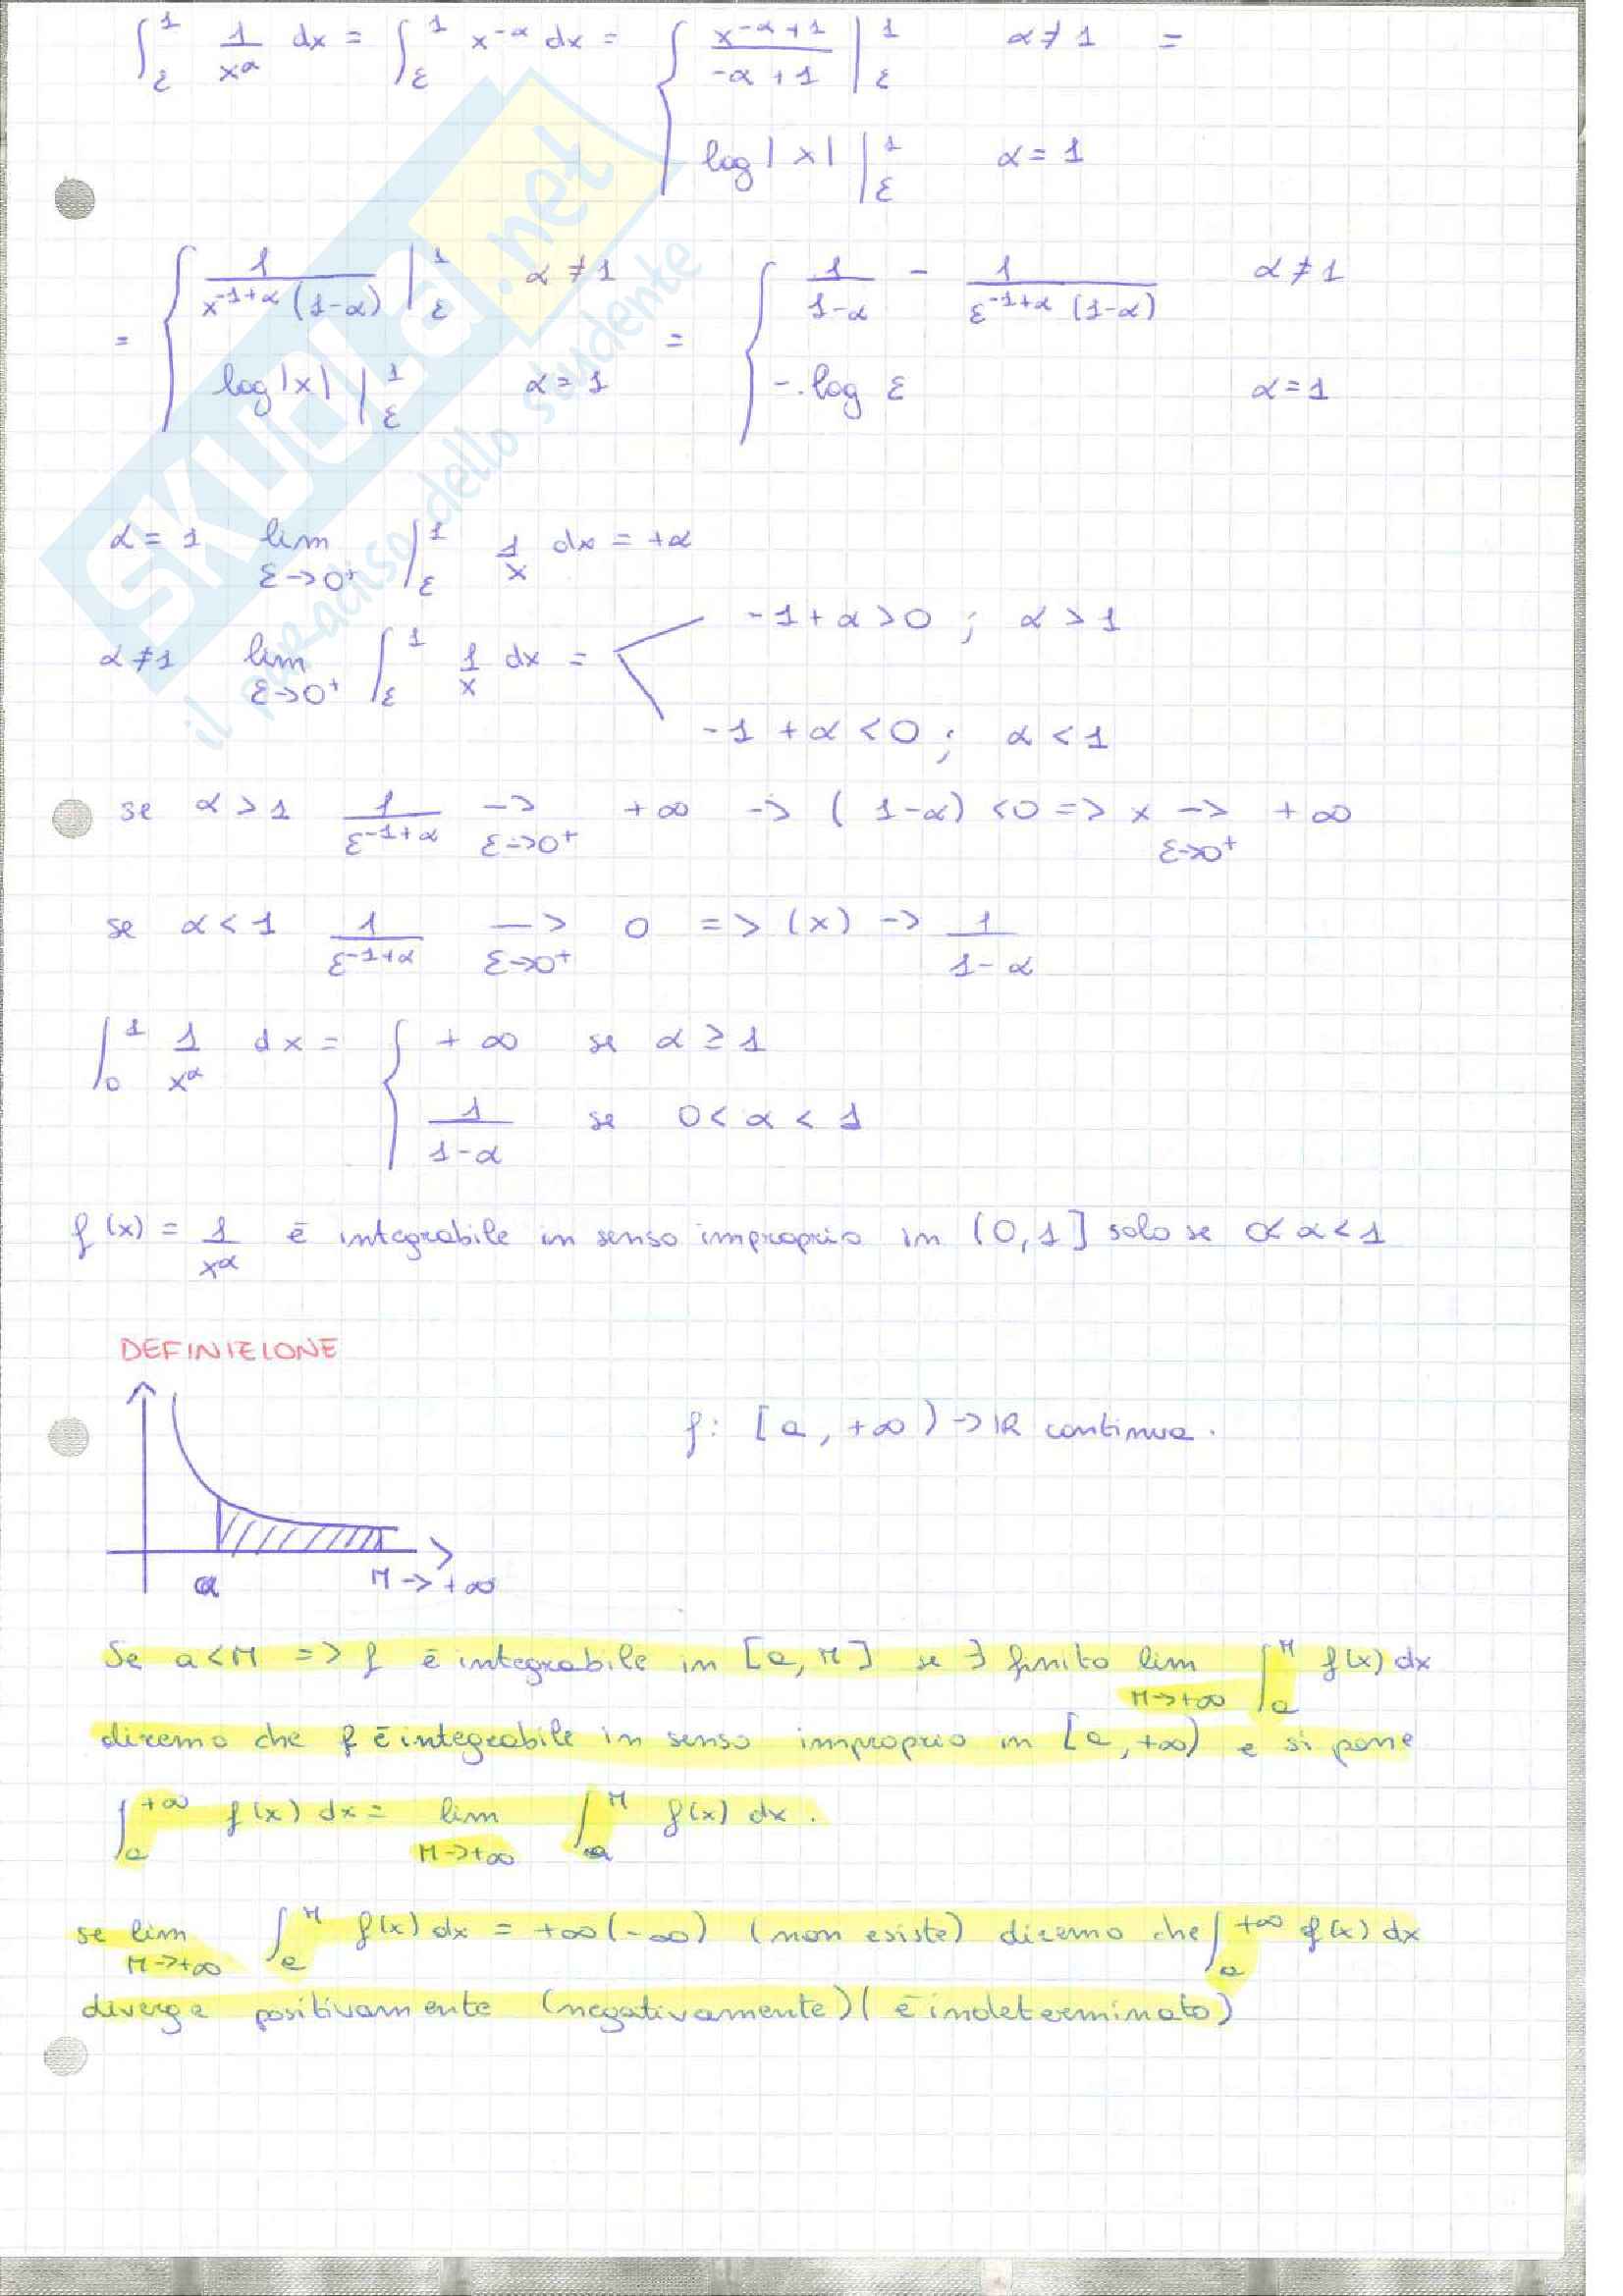 ∫_ε^1 1/x^α dx = ∫_ε^1 x^(-α) dx = { x^(-α+1)/(-α+1) |_ε^1 α≠1 =
log|x| |_ε^1 α=1
= { 1/(x^(-1+α) (1-α)) |_ε^1 α≠1 = { 1/(1-α) - 1/(ε^(-1+α) (1-α)) α≠1
log|x| |_ε^1 α=1 -log ε α=1
α=1 lim ε->0⁺ ∫_ε^1 1/x dx = +α
α≠1 lim ε->0⁺ ∫_ε^1 1/x dx = < -1+α>0; α>1
-1+α<0; α<1
se α>1 1/ε^(-1+α) -> ε->0⁺ +∞ -> (1-α)<0 => x -> ε->0⁺ +∞
se α<1 1/ε^(-1+α) -> ε->0⁺ 0 => (x) -> 1/(1-α)
∫_0^1 1/x^α dx = { +∞ se α≥1
1/(1-α) se 0<α<1
f(x) = 1/x^α è integrabile in senso improprio in (0,1] solo se 0<α<1
DEFINIZIONE
f: [a,+∞) -> ℝ continua.
a M->+∞
Se a<M => f è integrabile in [a,M] se ∃ finito lim M->+∞ ∫_a^M f(x) dx
diremo che f è integrabile in senso improprio in [a,+∞) e si pone
∫_a^+∞ f(x) dx = lim M->+∞ ∫_a^M f(x) dx.
se lim M->+∞ ∫_a^M f(x) dx = +∞(-∞) (non esiste) diremo che ∫_a^+∞ f(x) dx
diverge positivamente (negativamente) (è indeterminato)
SKUOLA.net
il paradiso dello studente